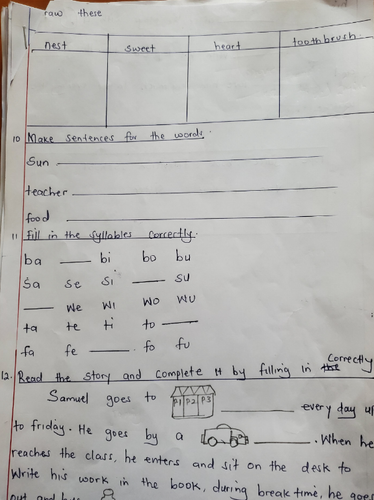 raw these
nest sweet heart toothbrush.
10 Make sentences for the words.
Sun
teacher
food
11 Fill in the syllables correctly.
ba ___ bi bo bu
Sa se si ___ su
___ we wi wo wu
ta te ti to ___
fa fe ___ fo fu
12. Read the story and complete it by filling in the Correctly
Samuel goes to P1 P2 P3 ___ every day
to friday. He goes by a ___. When he
reaches the class, he enters and sit on the desk to
Write his work in the book, during break time, he goes
out and